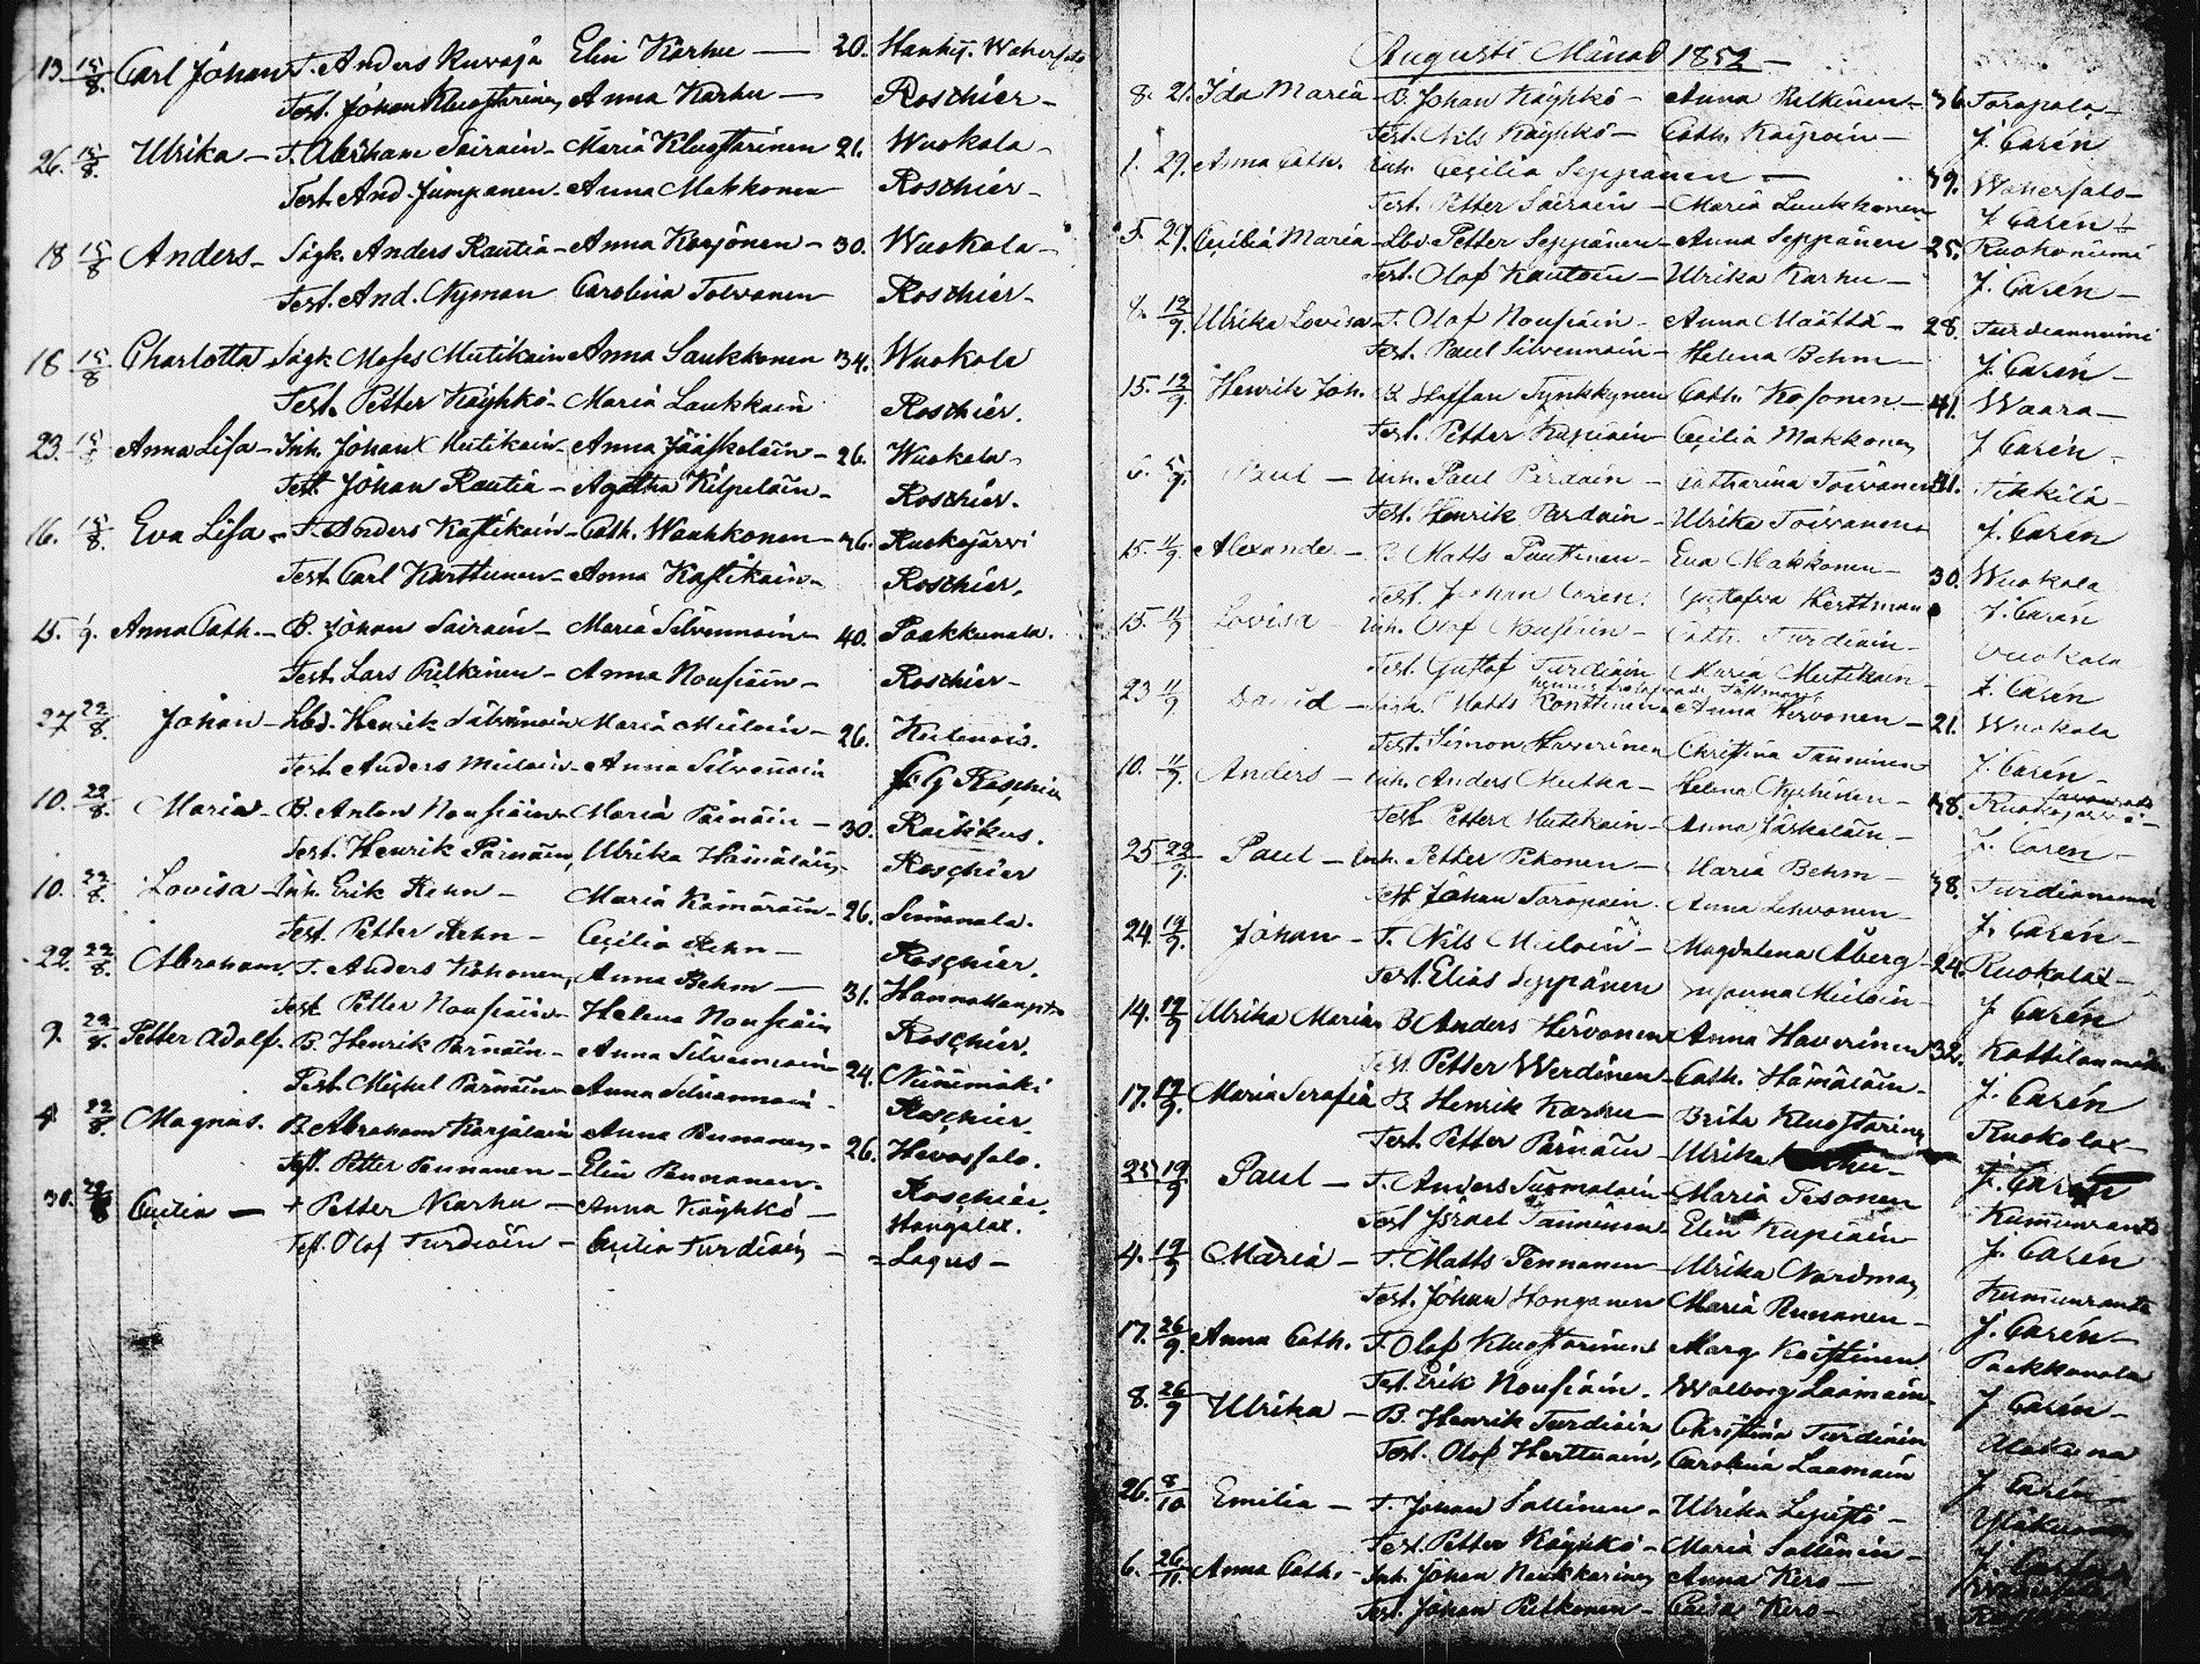 13. 15/8. Carl Johan T. Anders Kuvaja Elin Karhu — 20. Hankij. Waherfalo
Test. Johan Klugstarinen Anna Karhu — Roschier —
26. 15/8. Ulrika — T. Abraham Sairain — Maria Klugstarinen 21. Wuokala —
Test. And. Jumpanen. Anna Makkonen Roschier —
18 15/8 Anders — Sågk. Anders Rautia — Anna Korjonen — 30. Wuokala —
Test. And. Nyman Carolina Tolvanen Roschier —
18 15/8 Charlotta Sågk Moses Mutikain Anna Saukkonen 34. Wuokala
Test. Petter Käyhkö — Maria Laukkain Roschier.
23. 15/8 Anna Lisa — Inh. Johan Mutikain — Anna Jääskeläin — 26. Wuokala —
Test. Johan Rautia — Agatha Kilpeläin — Roschier.
16. 15/8. Eva Lisa — T. Anders Kastikain — Cath. Wauhkonen — 36. Ruokojärvi
Test. Carl Karttunen — Anna Kastikain — Roschier.
15. 1/9. Anna Cath. — B. Johan Sairain — Maria Silvennoin — 40. Paakkunala.
Test. Lars Pulkinen — Anna Nousiäin — Roschier —
27 22/8. Johan — Lbd. Henrik Silvennoin Maria Muloin — 26. Keilenois.
Test. Anders Muloin — Anna Silvennoin Roschier
10. 22/8. Maria — B. Anton Nousiäin — Maria Pärnäin — 30. Raikikus.
Test. Henrik Pärnäin, Ulrika Hämäläin — Roschier
10. 22/8. Lovisa — Inh. Erik Rehn — Maria Kämäräin — 26. Simanala.
Test. Petter Rehn — Cecilia Rehn — Roschier.
22. 22/8. Abraham. T. Anders Kohonen, Anna Behm — 31. Hannolanpelto
Test. Petter Nousiäin — Helena Nousiäin Roschier.
9. 22/8. Petter Adolf. B. Henrik Pärnäin — Anna Silvennoin 24. Niinimäki
Test. Michel Pärnäin — Anna Silvennoin — Roschier.
4 22/8. Magnus. B. Abraham Karjalain Anna Pennanen — 26. Hevosfalo.
Test. Petter Pennanen — Elin Pennanen — Roschier.
30. Cecilia — Petter Karhu — Anna Käyhkö — Haugalax.
Test. Olof Turdiäin — Cecilia Turdiäin — Lagus —
Augusti Månad 1852 —
8. 21. Ida Maria — B. Johan Käyhkö — Anna Pulkinen — 36. Torapala —
Test. Nils Käyhkö — Cath. Kaipain — J. Carén
1. 29. Anna Cath. Inh. Cecilia Seppänen — 39. Waherfalo —
Test. Petter Sairain — Maria Laukkonen J. Carén
5. 29. Cecilia Maria — Lbd. Petter Seppänen — Anna Seppänen 25. Ruokoniemi
Test. Olof Kautoin — Ulrika Karhu — J. Carén —
8. 12/9. Ulrika Lovisa — T. Olof Nousiäin — Anna Määttä — 28. Turdianniemi
Test. Paul Silvennoin — Helena Behm — J. Carén —
15. 12/9. Henrik Joh. B. Staffan Tynkkynen Cath. Kosonen — 41. Waara —
Test. Petter Kupiain — Cecilia Makkonen J. Carén —
6. 5/9. Paul — Inh. Paul Pardain — Catharina Toivanen 31. Tikkilä —
Test. Henrik Pardain — Ulrika Toivanen — J. Carén
15. 11/9. Alexander — B. Matts Puustinen — Eva Makkonen — 30. Wuokala
Test. Johan Coren. Gustafva Herttman J. Carén
15. 11/9 Lovisa — Inh. Olof Nousiäin — Cath. Turdiain — Wuokala
Test. Gustof Turdiain Maria Mutikain — J. Carén
23 11/9 David — Inh. Matts Konttinen Anna Hirvonen — 21. Wuokala
Test. Simon Haverinen Christina Tanninen J. Carén —
10. 11/9. Anders — Inh. Anders Mutka — Helena Nyckinen — 38. Ruokojärvi —
Test. Petter Mutikain — Anna Jäskeläin — J. Carén —
25 22/9. Paul — Inh. Petter Pekonen — Maria Behm — 38. Turdianniemi
Test. Johan Toropain. Anna Lehvonen — J. Carén —
24. 19/9. Johan — T. Nils Muloin — Magdalena Åberg — 24. Ruokolax —
Test. Elias Seppänen Muloin — J Carén
14. 19/9 Ulrika Maria B Anders Hirvonen Anna Haverinen 32. Kattilanmäki
Test. Petter Werdinen — Cath. Hämäläin — J. Carén
17. 19/9. Maria Serafia B. Henrik Karhu — Brita Klugstarinen Ruokolax —
Test. Petter Pärnäin — Ulrika Karhu — J. Carén
25 19/9 Paul — T. Anders Tuomalain — Maria Pesonen Kummunranta
Test. Israel Tanninen — Elin Kupiain J. Carén
4. 19/9 Maria — T. Matts Pennanen — Ulrika Nordman Kummunranta
Test. Johan Honganen Maria Runanen — J. Carén —
17. 26/9. Anna Cath. T. Olof Klugstarinen Marg Kaistinen Paakkunala
Test. Erik Nousiäin. Walborg Laamain J Carén —
8. 26/9 Ulrika — B. Henrik Turdiäin Christina Turdiäin Alakuna
Test. Olof Herttuain, Carolina Laamain J Carén —
26. 8/10. Emilia — T. Johan Sallinen — Ulrika Lepistö —
Test. Petter Käyhkö — Maria Sallinen —
6. 26/11. Anna Cath. — Inh. Johan Naukkarinen Anna Kero —
Test. Johan Pulkonen — Caisa Kero —